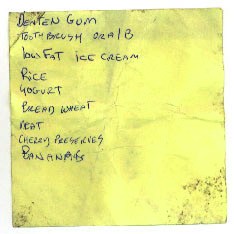 DENTEN GUM
TOOTHBRUSH ORAL/B
LOW FAT ICE CREAM
RICE
YOGURT
BREAD WHEAT
MEAT
CHERRY PRESERVES
BANANAS